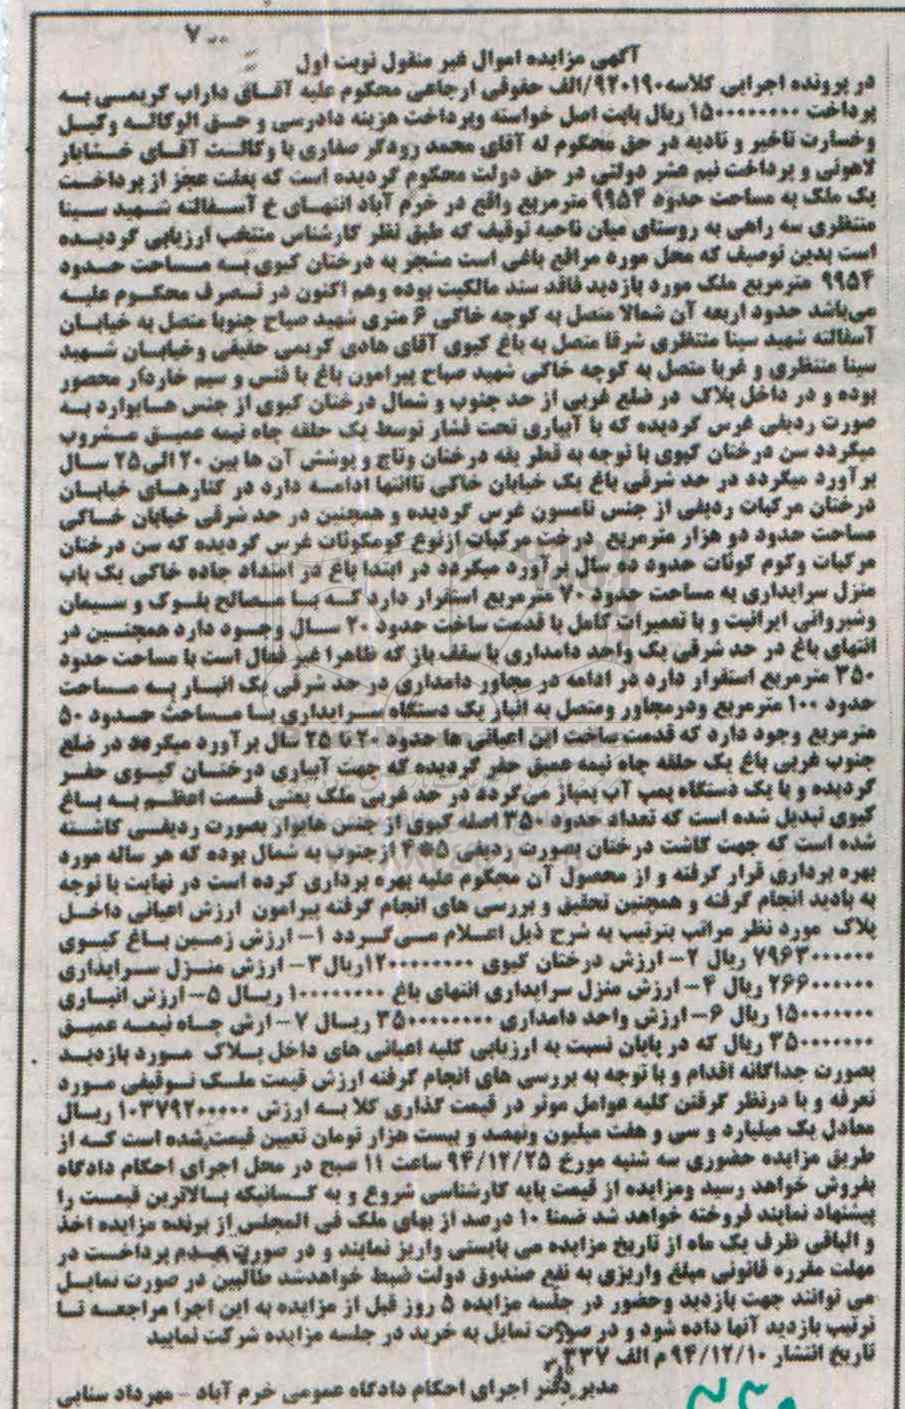 ۷۰۰
آگهی مزایده اموال غیر منقول نوبت اول
در پرونده اجرایی کلاسه ۹۲۰۱۹۰/الف حقوقی ارجاعی محکوم علیه آقای داراب کریمی به
پرداخت ۱۵۰۰۰۰۰۰۰۰ ریال بابت اصل خواسته وپرداخت هزینه دادرسی و حق الوکاله وکیل
وخسارت تاخیر و تادیه در حق محکوم له آقای محمد رودگر صفاری با وکالت آقای خشایار
لاهوتی و پرداخت نیم عشر دولتی در حق دولت محکوم گردیده است که بعلت عجز از پرداخت
یک ملک به مساحت حدود ۹۹۵۴ مترمربع واقع در خرم آباد انتهای خ آسفالته شهید سینا
منتظری سه راهی به روستای میان ناحیه توقیف که طبق نظر کارشناس منتخب ارزیابی گردیده
است بدین توصیف که محل مورد مرافع باغی است مشجر به درختان کیوی به مساحت حدود
۹۹۵۴ مترمربع ملک مورد بازدید فاقد سند مالکیت بوده وهم اکنون در تصرف محکوم علیه
می‌باشد حدود اربعه آن شمالا متصل به کوچه خاکی ۶ متری شهید صیاح جنوبا متصل به خیابان
آسفالته شهید سینا منتظری شرقا متصل به باغ کیوی آقای هادی کریمی حقیقی وخیابان شهید
سینا منتظری و غربا متصل به کوچه خاکی شهید صیاح پیرامون باغ با فنس و سیم خاردار محصور
بوده و در داخل پلاک در ضلع غربی از حد جنوب و شمال درختان کیوی از جنس هایوارد به
صورت ردیفی غرس گردیده که با آبیاری تحت فشار توسط یک حلقه چاه نیمه عمیق مشروب
میگردد سن درختان کیوی با توجه به قطر یقه درختان وتاج و پوشش آن ها بین ۲۰ الی۲۵ سال
برآورد میگردد در حد شرقی باغ یک خیابان خاکی تاانتها ادامه دارد در کنارهای خیابان
درختان مرکبات ردیفی از جنس تامسون غرس گردیده و همچنین در حد شرقی خیابان خاکی
مساحت حدود دو هزار مترمربع درخت مرکبات ازنوع کومکوئات غرس گردیده که سن درختان
مرکبات وکوم کوئات حدود ده سال برآورد میگردد در ابتدا باغ در امتداد جاده خاکی یک باب
منزل سرایداری به مساحت حدود ۷۰ مترمربع استقرار دارد که با مصالح بلوک و سیمان
وشیروانی ایرانیت و با تعمیرات کامل با قدمت ساخت حدود ۲۰ سال وجود دارد همچنین در
انتهای باغ در حد شرقی یک واحد دامداری با سقف باز که ظاهرا غیر فعال است با مساحت حدود
۳۵۰ مترمربع استقرار دارد در ادامه در مجاور دامداری در حد شرقی یک انبار به مساحت
حدود ۱۰۰ مترمربع ودرمجاور ومتصل به انبار یک دستگاه سرایداری با مساحت حدود ۵۰
مترمربع وجود دارد که قدمت ساخت این اعیانی ها حدود ۲۰ تا ۲۵ سال برآورد میگردد در ضلع
جنوب غربی باغ یک حلقه چاه نیمه عمیق حفر گردیده که جهت آبیاری درختان کیوی حفر
گردیده و با یک دستگاه پمپ آب پمپاژ می‌گردد در حد غربی ملک یعنی قسمت اعظم به باغ
کیوی تبدیل شده است که تعداد حدود ۳۵۰ اصله کیوی از جنس هایوار بصورت ردیفی کاشته
شده است که جهت کاشت درختان بصورت ردیفی ۵*۴ ازجنوب به شمال بوده که هر ساله مورد
بهره برداری قرار گرفته و از محصول آن محکوم علیه بهره برداری کرده است در نهایت با توجه
به بادید انجام گرفته و همچنین تحقیق و بررسی های انجام گرفته پیرامون ارزش اعیانی داخل
پلاک مورد نظر مراتب بترتیب به شرح ذیل اعلام می‌گردد ۱- ارزش زمین باغ کیوی
۷۹۶۳۰۰۰۰۰۰ ریال ۲- ارزش درختان کیوی ۱۲۰۰۰۰۰۰۰۰ریال۳- ارزش منزل سرایداری
۲۶۶۰۰۰۰۰۰ ریال ۴- ارزش منزل سرایداری انتهای باغ ۱۰۰۰۰۰۰۰۰ ریال ۵- ارزش انباری
۱۵۰۰۰۰۰۰۰ ریال ۶- ارزش واحد دامداری ۳۵۰۰۰۰۰۰۰ ریال ۷- ارش چاه نیمه عمیق
۳۵۰۰۰۰۰۰۰ ریال که در پایان نسبت به ارزیابی کلیه اعیانی های داخل پلاک مورد بازدید
بصورت جداگانه اقدام و با توجه به بررسی های انجام گرفته ارزش قیمت ملک توقیفی مورد
تعرفه و با درنظر گرفتن کلیه عوامل موثر در قیمت گذاری کلا به ارزش ۱۰۳۷۹۲۰۰۰۰۰ ریال
معادل یک میلیارد و سی و هفت میلیون ونهصد و بیست هزار تومان تعیین قیمت شده است که از
طریق مزایده حضوری سه شنبه مورخ ۹۴/۱۲/۲۵ ساعت ۱۱ صبح در محل اجرای احکام دادگاه
بفروش خواهد رسید ومزایده از قیمت پایه کارشناسی شروع و به کسانیکه بالاترین قیمت را
پیشنهاد نمایند فروخته خواهد شد ضمنا ۱۰ درصد از بهای ملک فی المجلس از برنده مزایده اخذ
و الباقی ظرف یک ماه از تاریخ مزایده می بایستی واریز نمایند و در صورت عدم پرداخت در
مهلت مقرره قانونی مبلغ واریزی به نفع صندوق دولت ضبط خواهدشد طالبین در صورت تمایل
می توانند جهت بازدید وحضور در جلسه مزایده ۵ روز قبل از مزایده به این اجرا مراجعه تا
ترتیب بازدید آنها داده شود و در صورت تمایل به خرید در جلسه مزایده شرکت نمایید
تاریخ انتشار ۹۴/۱۲/۱۰ م الف ۳۳۷
مدیر دفتر اجرای احکام دادگاه عمومی خرم آباد - مهرداد سنایی